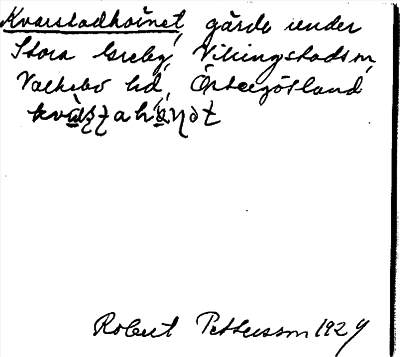 Kvarstadhornet, gärde under
Stora Greby, Vikingstads sn,
Valkebo hd, Östergötland
Robert Pettersson 1929